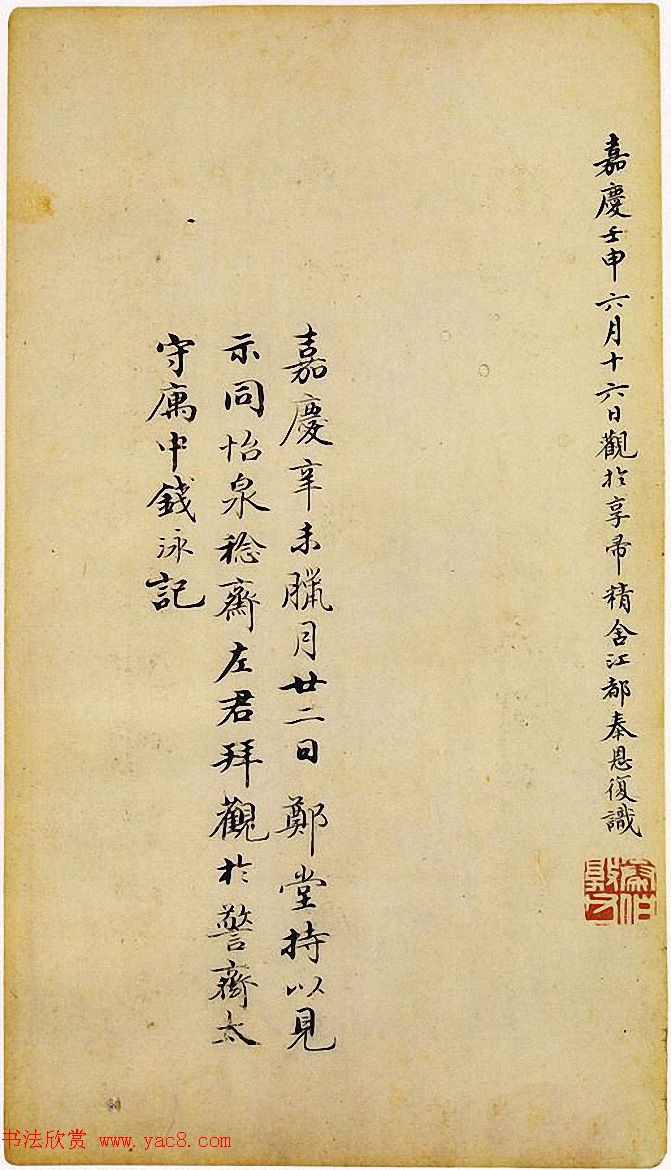 嘉慶壬申六月十六日觀於享帚精舍江都秦恩復識
嘉慶辛未臘月廿二日鄭堂持以見
示同怡泉稔齋左君拜觀於警齋太
守寓中錢泳記
书法欣赏 www.yac8.com